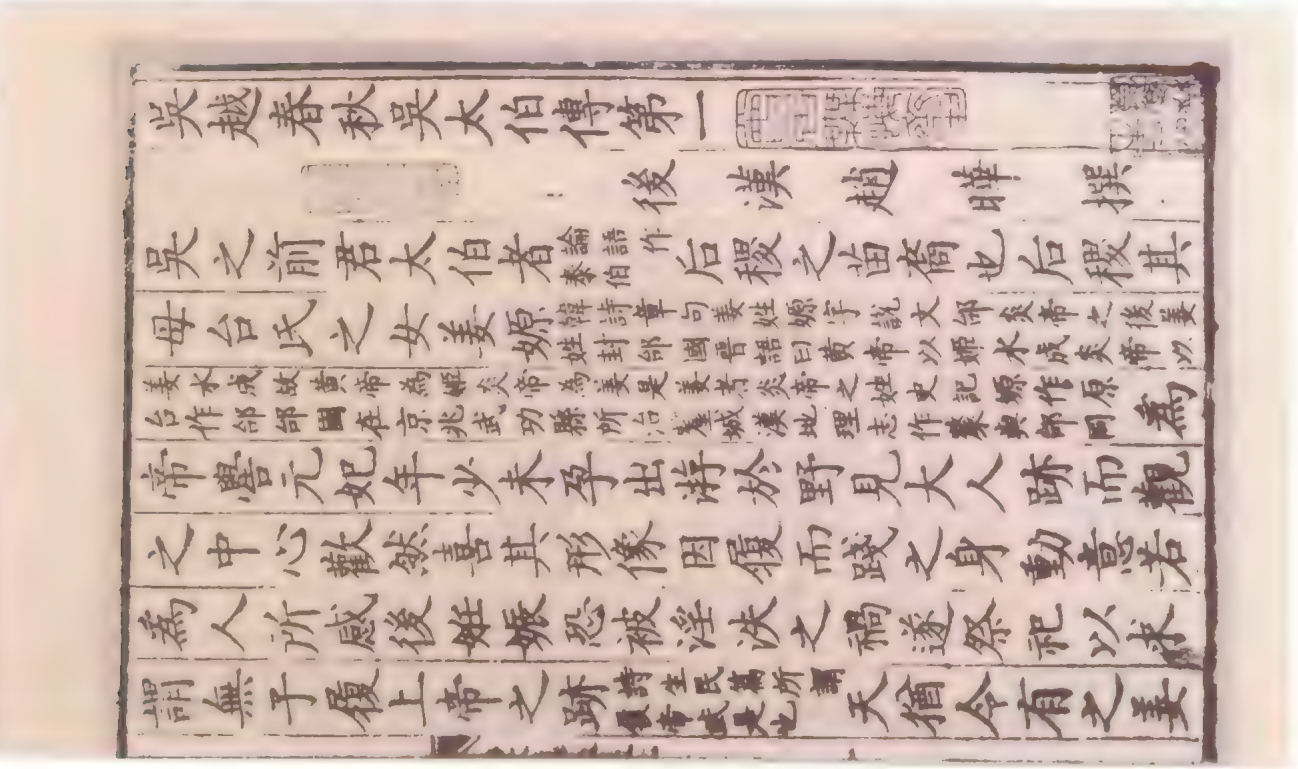 吳越春秋吳太伯傳第一
後漢趙曄撰
吳之前君太伯者論語作泰伯后稷之苗裔也后稷其
母台氏之女姜嫄韓詩章句姜姓嫄字說文邰炎帝之後姜姓封邰國晉語曰黃帝以姬水成炎帝以
姜水成故黃帝為姬炎帝為姜是姜者炎帝之姓史記嫄作原台作邰邰國在京兆武功縣所治斄城漢地理志作斄與邰同為
帝嚳元妃年少未孕出游於野見大人跡而觀
之中心歡然喜其形像因履而踐之身動意若
為人所感後姙娠恐被淫泆之禍遂祭祀以求
謂無子履上帝之跡詩生民篇所謂履帝武是也天猶令有之姜